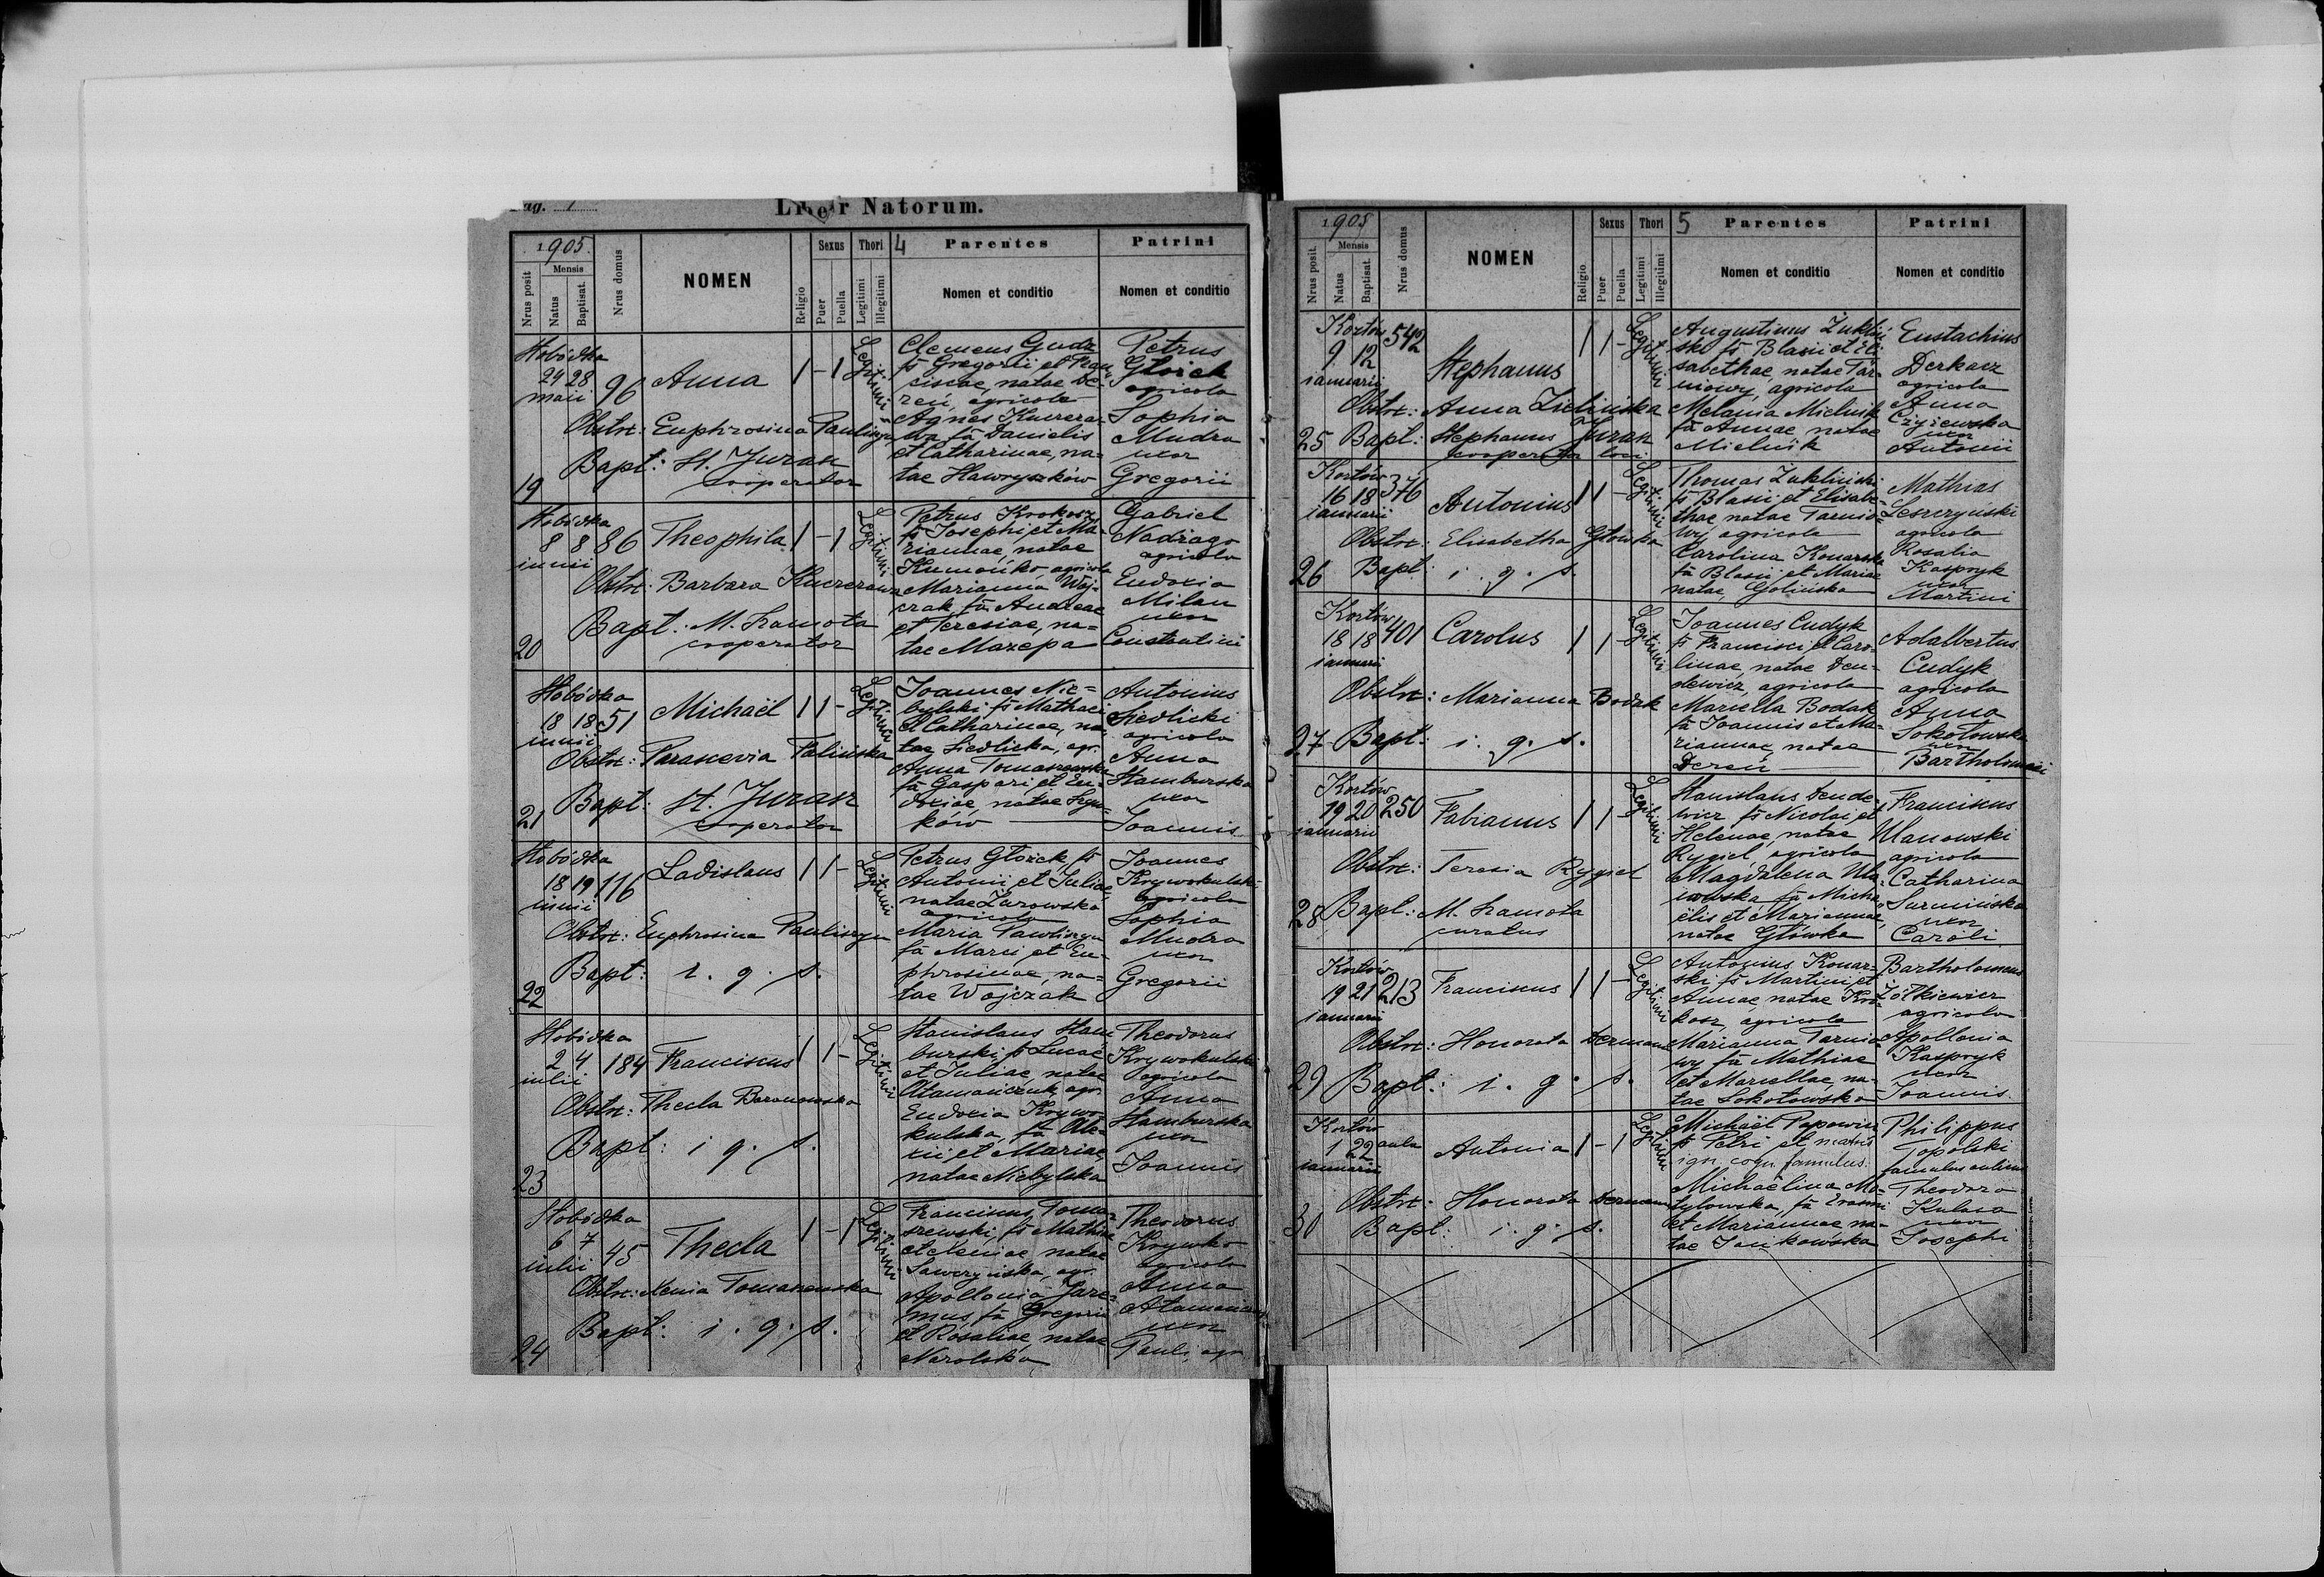 Pag. 1
Liber Natorum.
1905.
Nrus posit
Mensis
Natus
Baptisat.
Nrus domus
NOMEN
Religio
Sexus
Puer
Puella
Thori
Legitimi
Illegitimi
4
Parentes
Nomen et conditio
Patrini
Nomen et conditio
19
Słobódka
24 28
maii
96
Anna
1 - 1
Legitimi
Obstr: Euphrosina Pauliszyn
Bapt: St. Jurasz
cooperator
Clemens Gudz
fs Gregorii et Fran-
ciscae, natae De-
reń, agricola
Agnes Kuczera-
wa fa Danielis
et Catharinae, na-
tae Hawryszków
Petrus
Głożek
agricola
Sophia
Mudra
uxor
Gregorii
20
Słobódka
8 8
iunii
86
Theophila
1 - 1
Legitimi
Obstr: Barbara Kuczerawa
Bapt. M. Łamota
cooperator
Petrus Krokosz
fs Josephi et Ma-
riannae, natae
agricola
Marianna Woj-
czak, fa Andreae
et Teresiae, na=
tae Mazepa
Gabriel
Nadrago
agricola
Eudoxia
Milan
uxor
Constantini
21
Słobódka
18 18
iunii
51
Michaël
1 1 -
Legitimi
Obstr: Parascevia Falińska
Bapt: St. Jurasz
cooperator
Joannes Nie=
bylski fs Mathaei
et Catharinae, na-
tae Siedlicka, agr.
Anna Tomaszewska
fa Gaspari et Eu-
doxiae, natae
ków
Antonius
Siedlicki
agricola
Anna
Hamburska
uxor
Joannis
22
Słobódka
18 19
iunii
116
Ladislaus
1 1 -
Legitimi
Obstr: Euphrosina Pauliszyn
Bapt: i. q. s.
Petrus Głożek, fs
Antonii et Juliae,
natae Żarowska
agricola
Maria Pawliszyn
fa Marci et Eu-
phrosinae, na=
tae Wojczak
Joannes
Krywokulski
agricola
Sophia
Mudra
uxor
Gregorii
23
Słobódka
2 4
iulii
184
Franciscus
1 1 -
Legitimi
Obstr: Thecla Baranowska
Bapt: i. q. s.
Stanislaus Ham-
burski, fs Lucae
et Juliae, natae
Atamańczuk, agr.
Eudoxia Krywo-
kulska, fa Ale-
xii et Mariae,
natae Niebylska
Theodorus
Krywokulski
agricola
Anna
Hamburska
uxor
Joannis
24
Słobódka
6 7
iulii
45
Thecla
1 - 1
Legitimi
Obstr: Xenia Tomaszewska
Bapt: i. q. s.
Franciscus Toma-
szewski, fs Mathiae
et Xeniae, natae
Sawczyńska, agr.
Apollonia Jare-
mus, fa Gregorii
et Rosaliae, natae
Narolska
Theodorus
Krywko
agricola
Anna
uxor
Pauli, agr.
1905
Nrus posit.
Mensis
Natus
Baptisat.
Nrus domus
NOMEN
Religio
Sexus
Puer
Puella
Thori
Legitimi
Illegitimi
5
Parentes
Nomen et conditio
Patrini
Nomen et conditio
25
Kozłów
9 12
ianuarii
542
Stephanus
1 1 -
Legitimi
Obstr: Anna Zielińska
Bapt: Stephanus Jurasz
cooperator loci
Augustinus Żukliń-
ski fs Blasii et Eli-
sabethae, natae Tar-
niowy, agricola
Melania Mielnik
fa Annae natae
Mielnik
Eustachius
Derkacz
agricola
Anna
Czyżewska
uxor
Antonii
26
Kozłów
16 18
ianuarii
376
Antonius
1 1 -
Legitimi
Obstr: Elisabetha Głowska
Bapt: i. q. s.
Thomas Żukliński
fs Blasii et Elisabe-
thae, natae Tarnio-
wy agricola
Carolina Konarska
fa Blasii et Mariae
natae, Golińska
Mathias
Leszczyński
agricola
Rosalia
Kaspryk
uxor
Martini
27
Kozłów
18 18
ianuarii
401
Carolus
1 1 -
Legitimi
Obstr: Marianna Bodak
Bapt: i. q. s.
Joannes Cudyk
fs Francisci et Caro-
linae, natae Den-
dewicz, agricola
Mariella Bodak
fa Joannis et Ma-
riannae, natae
Dereń
Adalbertus
Cudyk
agricola
Anna
Sokołowska
uxor
Bartholomaei
28
Kozłów
19 20
ianuarii
250
Fabianus
1 1 -
Legitimi
Obstr: Teresia Rygiel
Bapt: M. Łamota
curatus
Stanislaus Dende-
wicz fs Nicolai et
Helenae, natae
Rygiel, agricola
Magdalena Ula-
nowska, fa Micha-
ëlis et Mariannae,
natae Główka
Franciscus
Ulanowski
agricola
Catharina
Surmińska
uxor
Caroli
29
Kozłów
19 21
ianuarii
213
Franciscus
1 1 -
Legitimi
Obstr: Honorata Derman
Bapt: i. q. s.
Antonius Konar-
ski fs Martini et
Annae, natae Kro-
kosz, agricola
Marianna Tarnio-
wy fa Mathiae
et Mariellae, na-
tae Sokołowska
Bartholomeus
Żółkiewicz
agricola
Apollonia
Kaspryk
uxor
Joannis
30
Kozłów
1 22
ianuarii
aula
Antonia
1 - 1
Legitimi
Obstr: Honorata Derman
Bapt: i. q. s.
Michaël Papowicz
fs Petri et matris
ign. cogn. famulus.
Michaëlina Mo-
tylowska, fa
et Mariannae na-
tae Jankowska
Philippus
Topolski
famulus aulicus
Theodora
Kulasa
uxor
Josephi